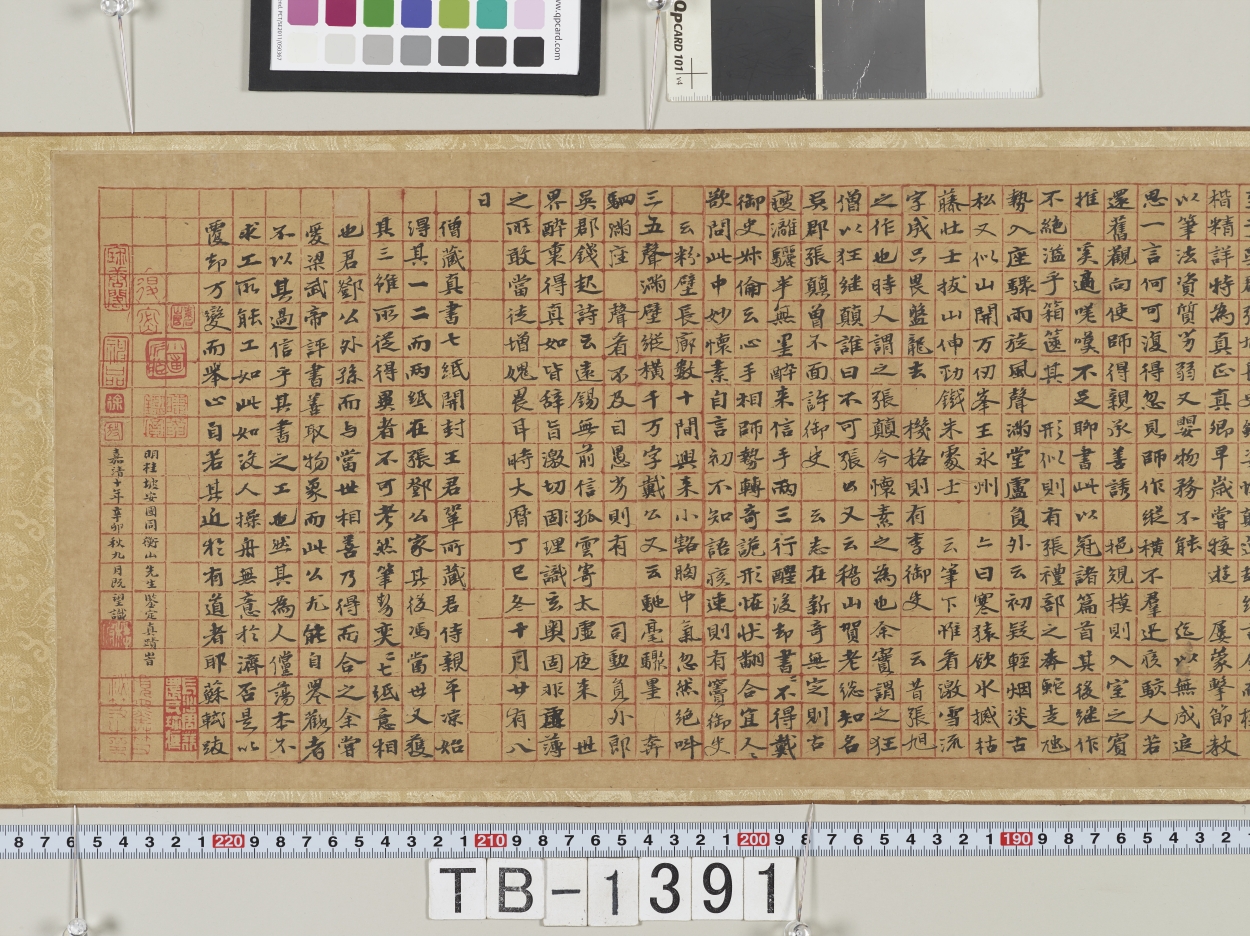 楷精詳特為真正真卿早歲嘗接遊屢蒙擊節教
以筆法資質劣弱又嬰物務不能迄以無成追
思一言何可復得忽見師作縱橫不羣迅疾駭人若
還舊觀向使師得親承善誘挹規模則入室之賓
推奚適嗟嘆不足聊書此以冠諸篇首其後継作
不絕溢乎箱篋其形似則有張禮部之奔蛇走虺
勢入座驟雨旋風聲滿堂盧負外云初疑輕烟淡古
松又似山開万仞峯王永州亠曰寒猿飲水撼枯
藤壯士拔山伸勁鐵朱䖏士云筆下惟看激雪流
字成只畏盤龍去機格則有李御史云昔張旭
之作也時人謂之張顛今懷素之為也余實謂之狂
僧以狂継顛誰曰不可張公又云稽山賀老總知名
吳郡張顛曾不面許御史云志在新奇無定則古
瘦漓驪半無墨醉来信手兩三行醒後却書〻不得戴
御史叔倫云心手相師勢轉奇詭形恠狀翻合宜人〻
欲問此中妙懷素自言初不知語疾速則有竇御史
云粉壁長廊數十間興来小豁胸中氣忽然絕叫
三五聲滿壁縱橫千万字戴公又云馳毫驟墨奔
駟滿座聲看不及目愚劣則有司勳負外郎
吳郡錢起詩云遠錫無前信孤雲寄太虛夜来世
界醉棗得真如皆辭旨激切固理識玄奧固非虛薄
之所敢當徒增媿畏耳時大曆丁巳冬十月廿有八
日
僧藏真書七紙開封王君鞏所藏君侍親平凉始
得其一二而兩紙在張鄧公家其後馮當世又獲
其三雖所從得異者不可考然筆勢奕〻七紙意相
也君鄧公外孫而与當世相善乃得而合之余嘗
愛梁武帝評書善取物象而此公尤能自譽觀者
不以其過信乎其書之工也然其為人儻蕩本不
求工所能工如此如沒人操舟無意於濟否是以
覆却万變而舉心自若其近於有道者耶蘇轍跋
明桂坡安國同衡山先生鑒定真蹟昔
嘉清十年辛卯秋九月既望識
www.qpcard.com
QPCARD 101 v4
TB-1391
8 7 6 5 4 3 2 1 220 9 8 7 6 5 4 3 2 1 210 9 8 7 6 5 4 3 2 1 200 9 8 7 6 5 4 3 2 1 190 9 8 7 6 5 4 3 2